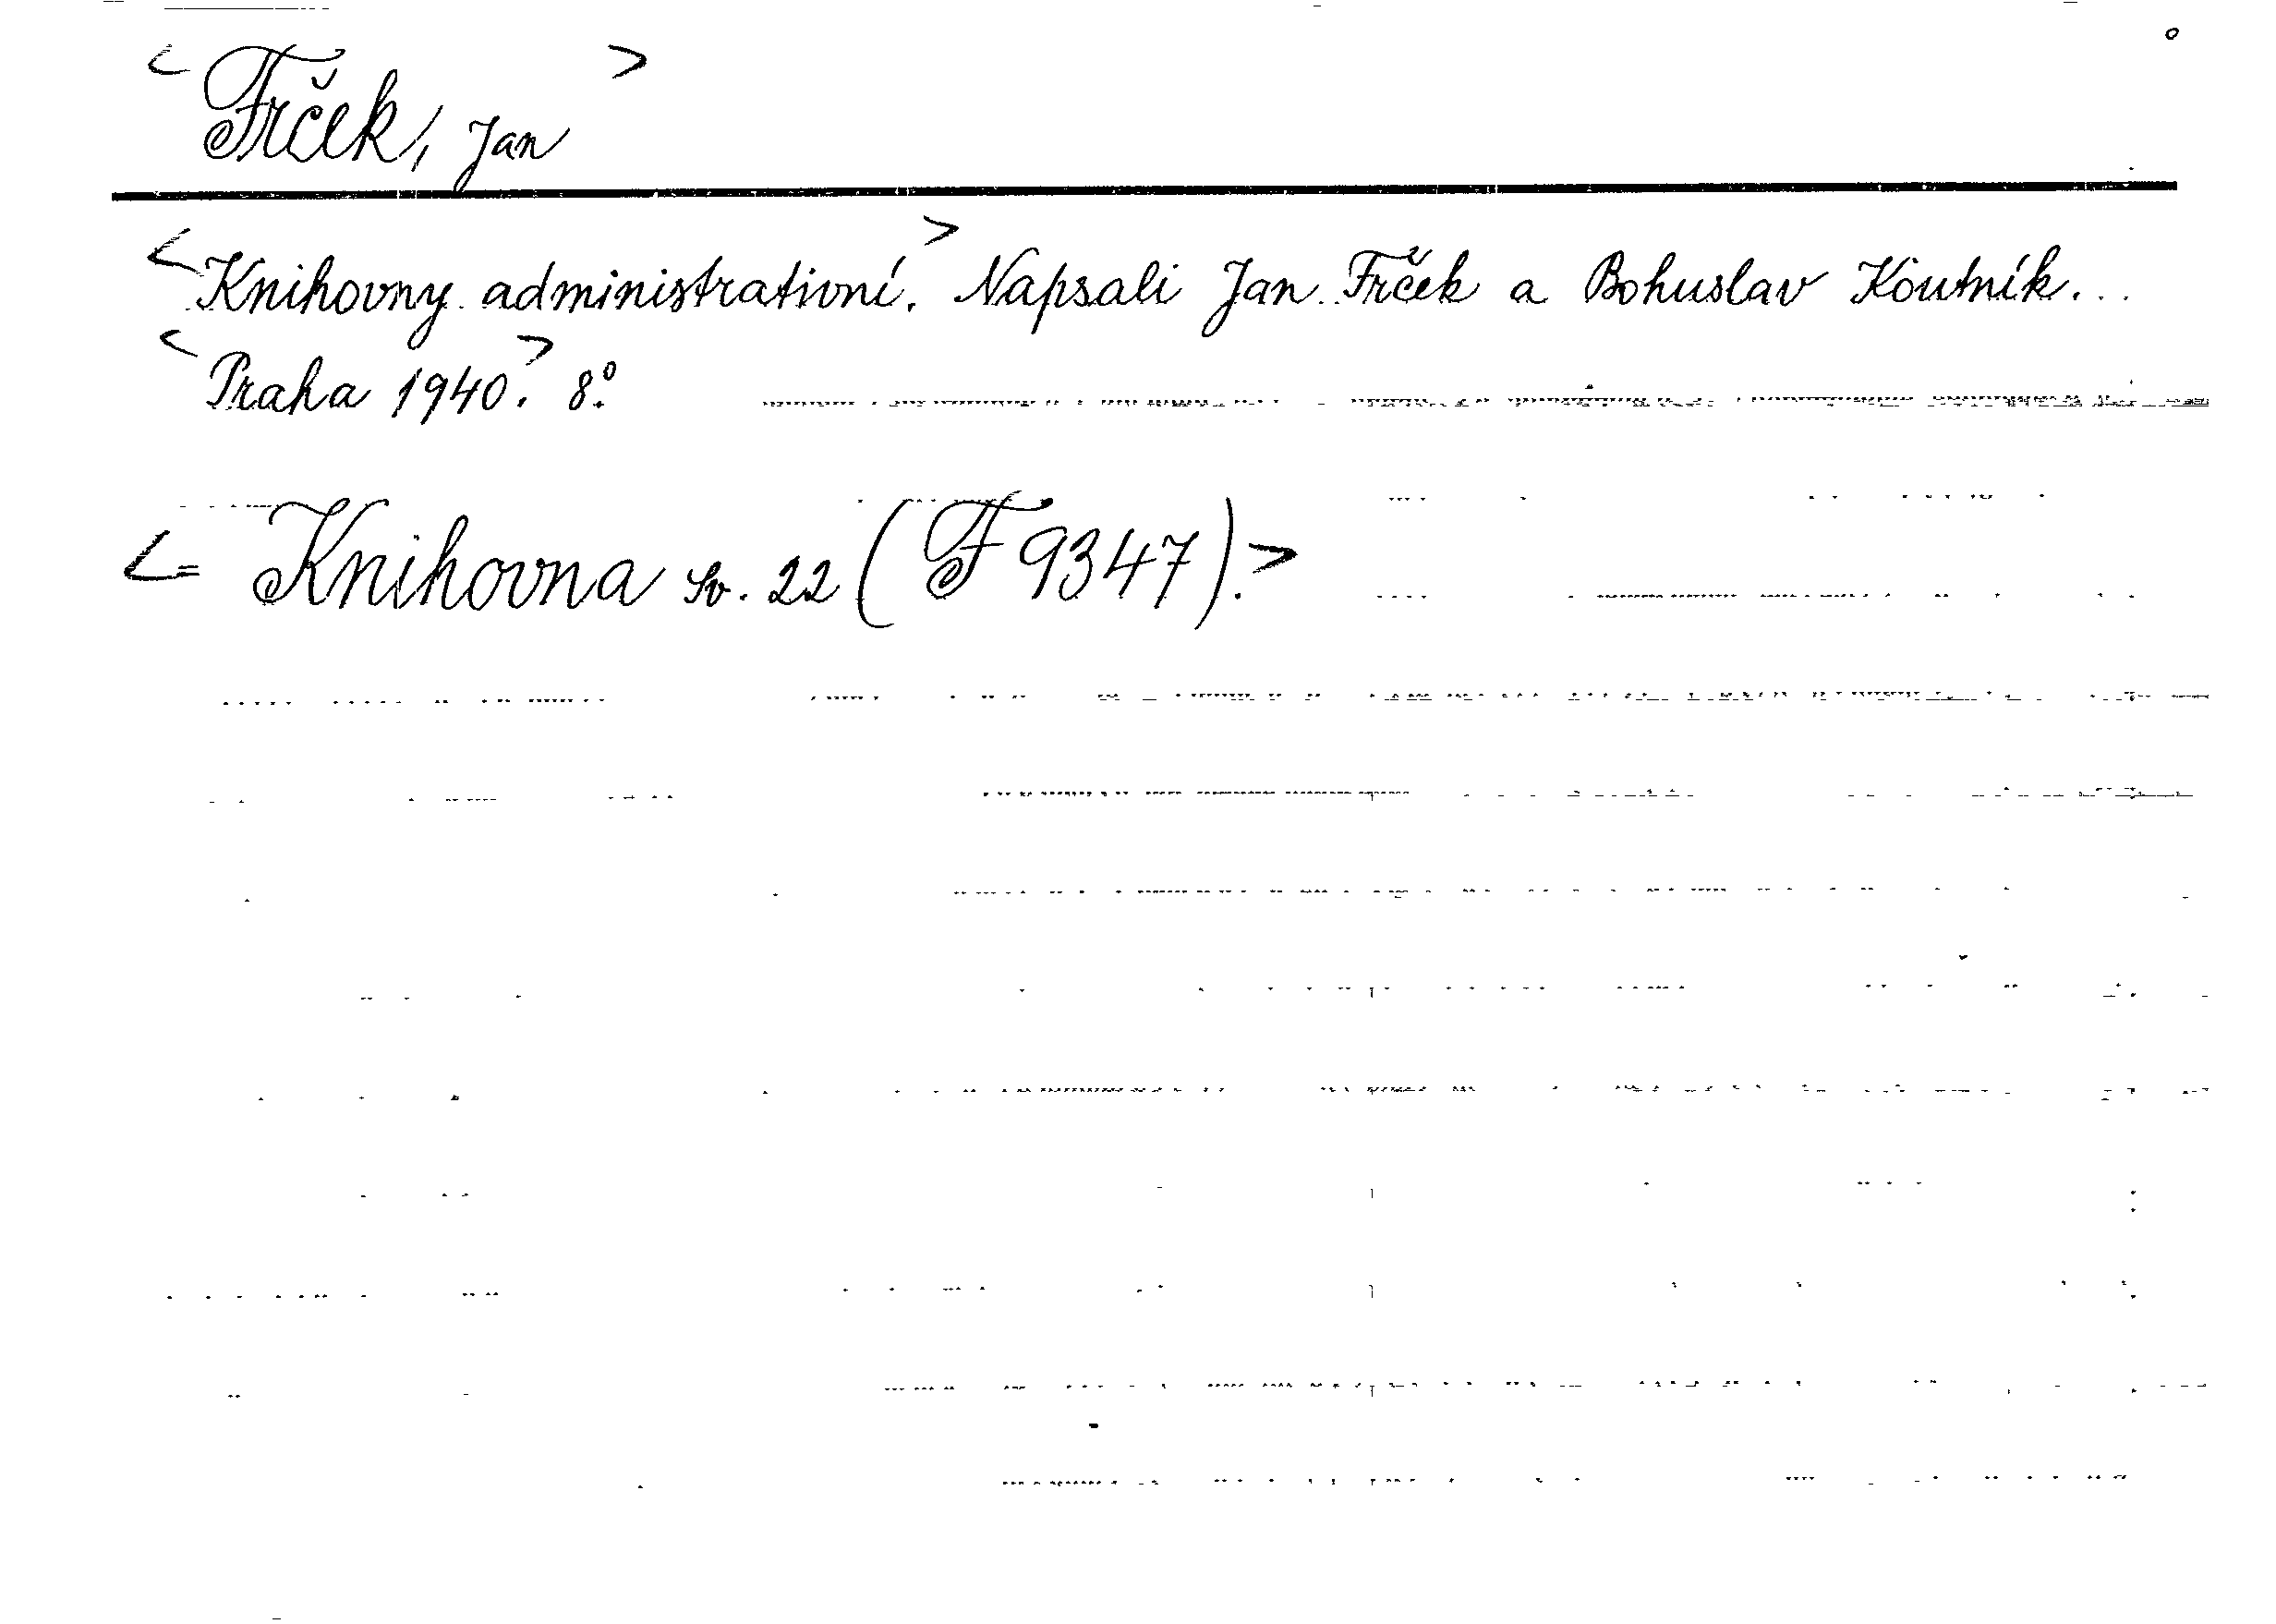 <Frček, Jan>
<Knihovny administrativní.> Napsali Jan Frček a Bohuslav Koutník...
<Praha 1940.> 8°.
<= Knihovna sv. 22 (F 9347).>